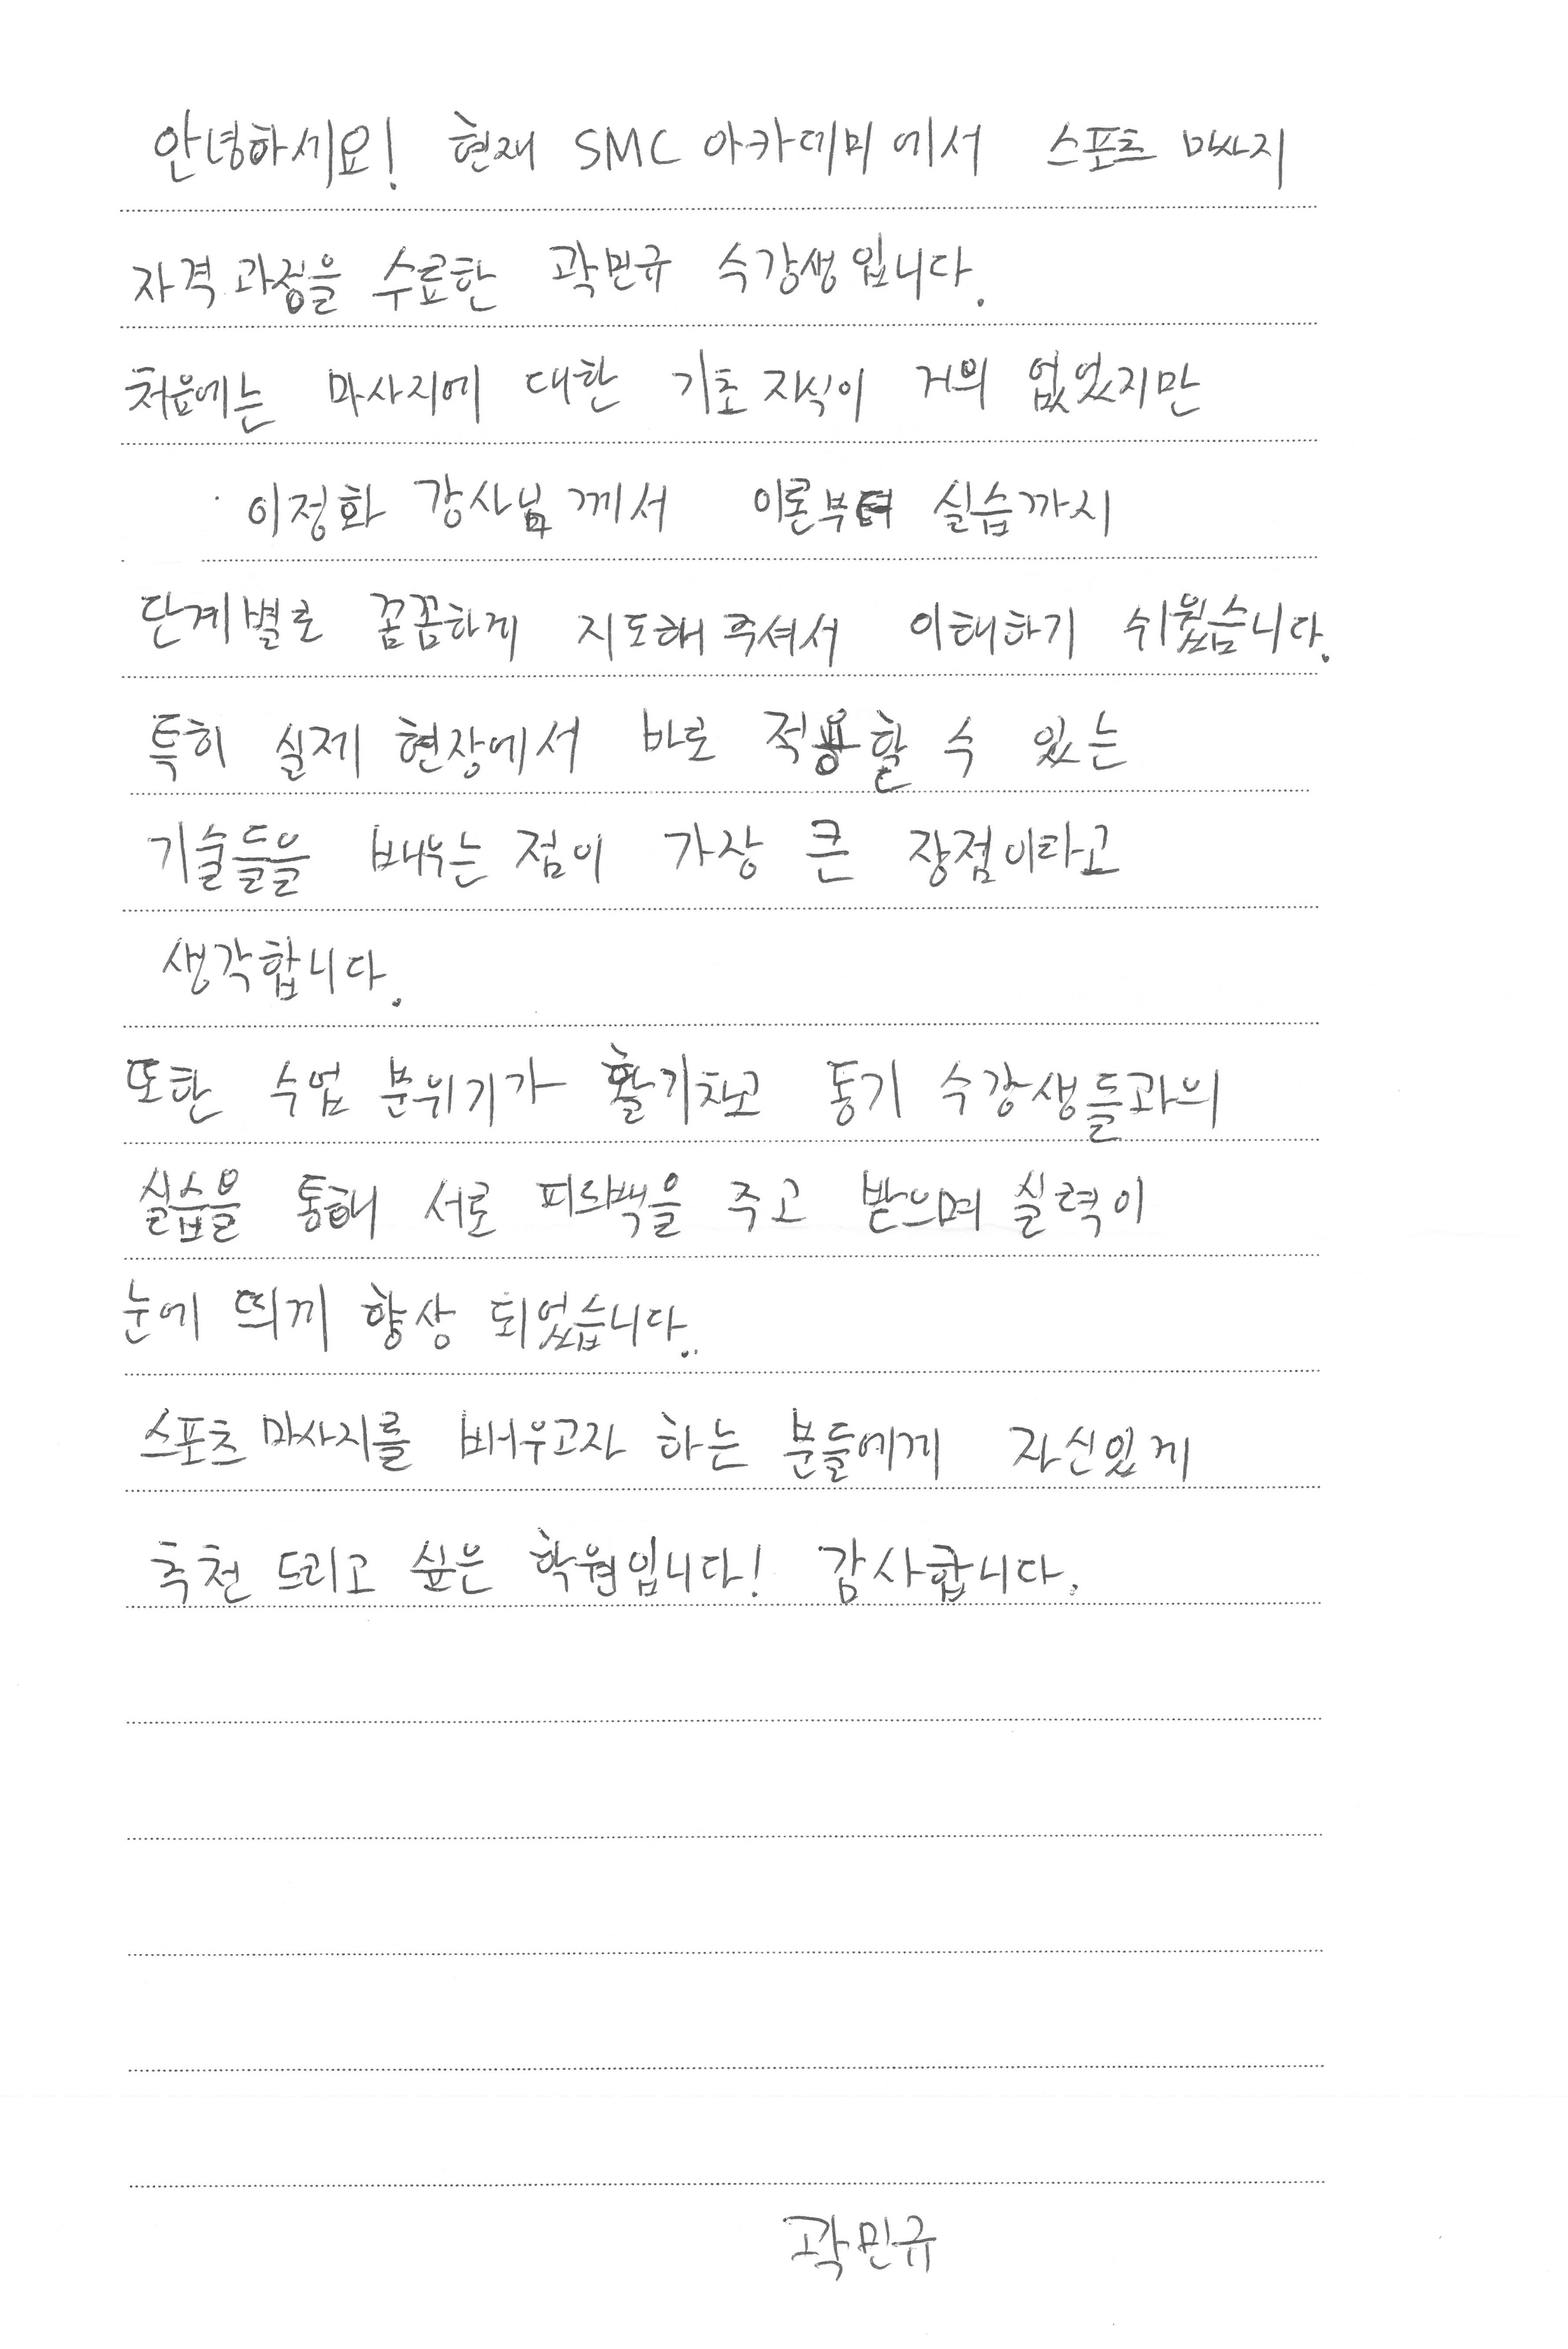 안녕하세요! 현재 SMC 아카데미에서 스포츠 마사지
자격 과정을 수료한 곽민규 수강생입니다.
처음에는 마사지에 대한 기초 지식이 거의 없었지만
이정화 강사님께서 이론부터 실습까지
단계별로 꼼꼼하게 지도해 주셔서 이해하기 쉬웠습니다.
특히 실제 현장에서 바로 적용할 수 있는
기술들을 배우는 점이 가장 큰 장점이라고
생각합니다.
또한 수업 분위기가 활기차고 동기 수강생들과의
실습을 통해 서로 피드백을 주고 받으며 실력이
눈에 띄게 향상 되었습니다.
스포츠 마사지를 배우고자 하는 분들에게 자신있게
추천 드리고 싶은 학원입니다! 감사합니다.
곽민규